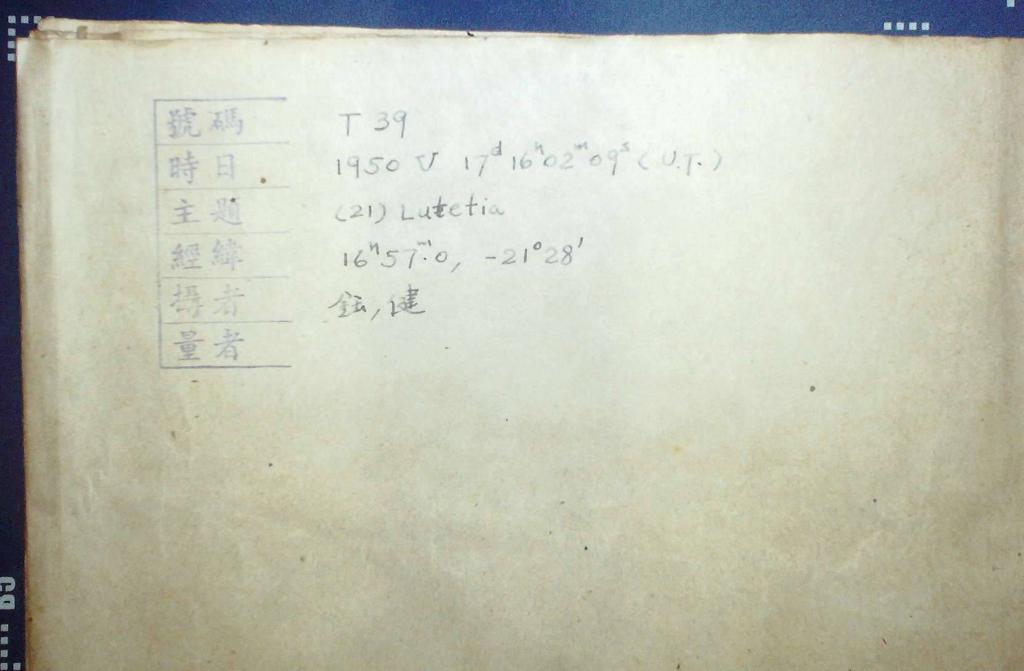 號碼 T 39
時日 1950 V 17ᵈ16ʰ02ᵐ09ˢ (U.T.)
主題 (21) Lutetia
經緯 16ʰ57ᵐ.0, -21°28'
攝者 鈺,健
量者